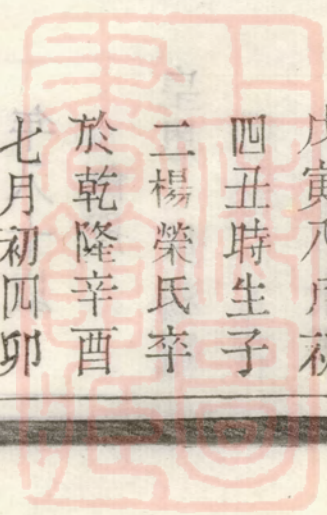 戊寅八月初
四丑時生子
二楊榮氏卒
於乾隆辛酉
七月初四卯